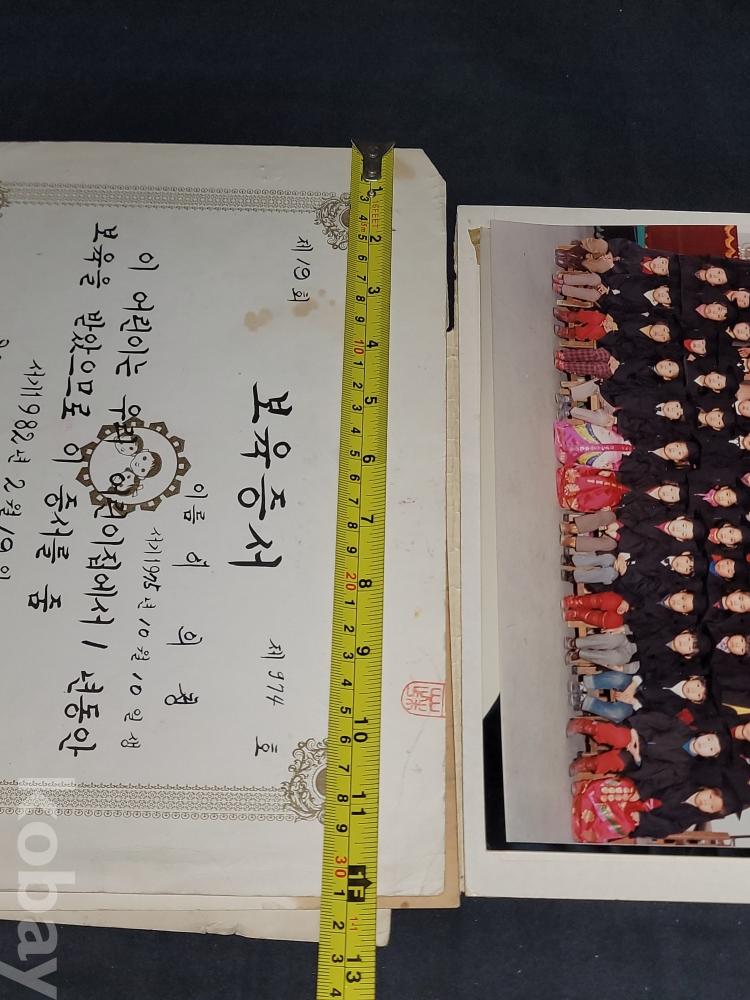 제19회 제 974 호
보육증서
이름
서기1975년 10월 10일생
이 어린이는 우리 어린이집에서 1년동안
보육을 받았으므로 이 증서를 줌
서기1982년 2월19일
1 2 3 4 5 6 7 8 9 10 11 1F 13
kobay